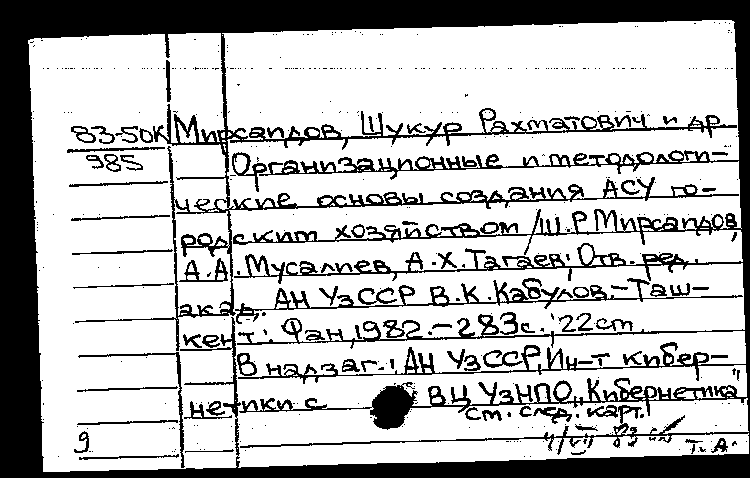 83-50К Мирсаидов, Шукур Рахматович и др
985 Организационные и методологи-
ческие основы создания АСУ го-
родским хозяйством / Ш.Р Мирсаидов,
А.А. Мусалиев, А.Х. Тагаев; Отв. ред.
акад. АН УзССР В.К. Кабулов.- Таш-
кент: Фан, 1982.- 283с.; 22cm.
В надзаг.: АН УзССР, Ин-т кибер-
нетики с ВЦ УзНПО „Кибернетика"
см. след. карт.
9 4/VII 83 Т. А.